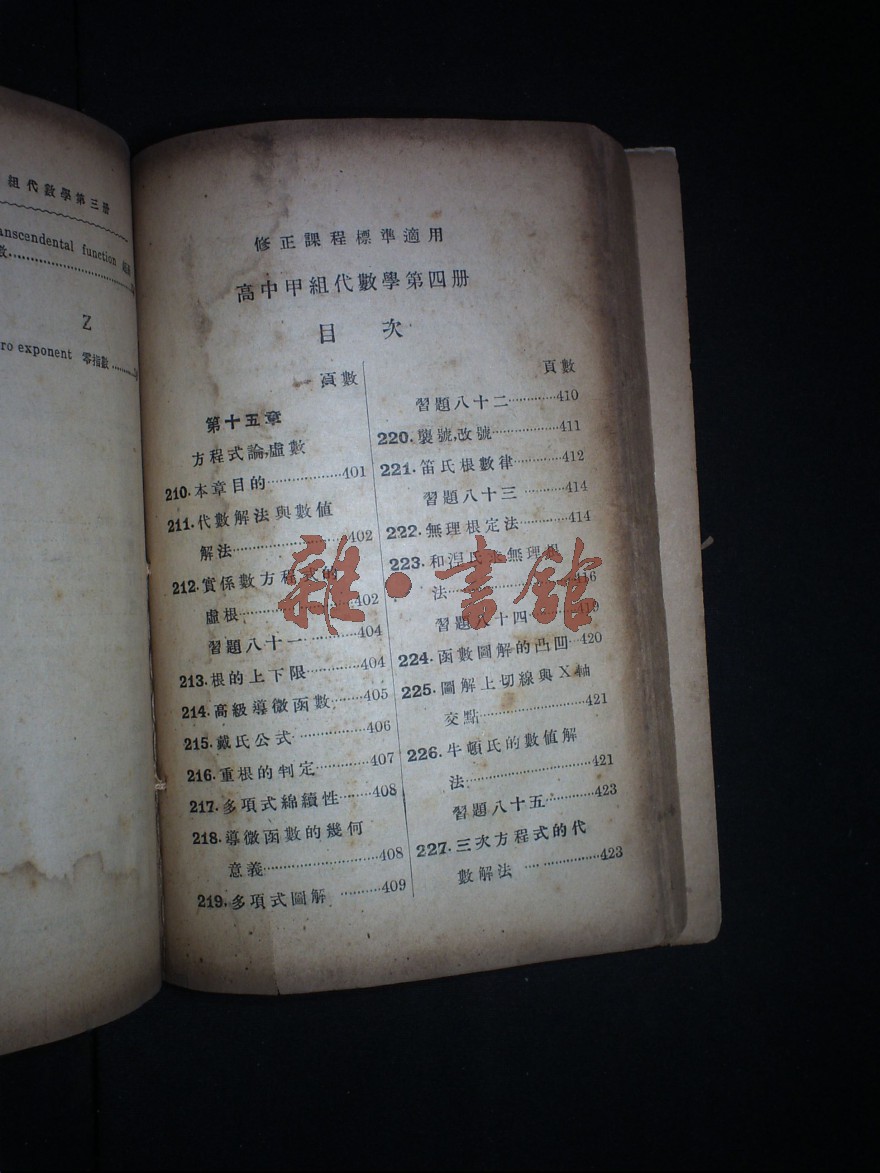 組代數學第三冊
anscendental function
數
Z
ro exponent 零指數
修正課程標準適用
高中甲組代數學第四册
目 次
頁數
第十五章
方程式論,虛數
210.本章目的………………401
211.代數解法與數值
解法………………402
212.實係數方程式的
虛根………………402
習題八十一…………404
213.根的上下限…………404
214.高級導微函數………405
215.戴氏公式……………406
216.重根的判定…………407
217.多項式綿續性………408
218.導微函數的幾何
意義…………………408
219.多項式圖解…………409
頁數
習題八十二…………410
220.變號,改號……………411
221.笛氏根數律…………412
習題八十三…………414
222.無理根定法…………414
223.和涅氏 無理根
法…………………416
習題八十四…………419
224.函數圖解的凸凹…420
225.圖解上切線與X軸
交點…………………421
226.牛頓氏的數值解
法……………………421
習題八十五…………423
227.三次方程式的代
數解法………………423
雜·書館